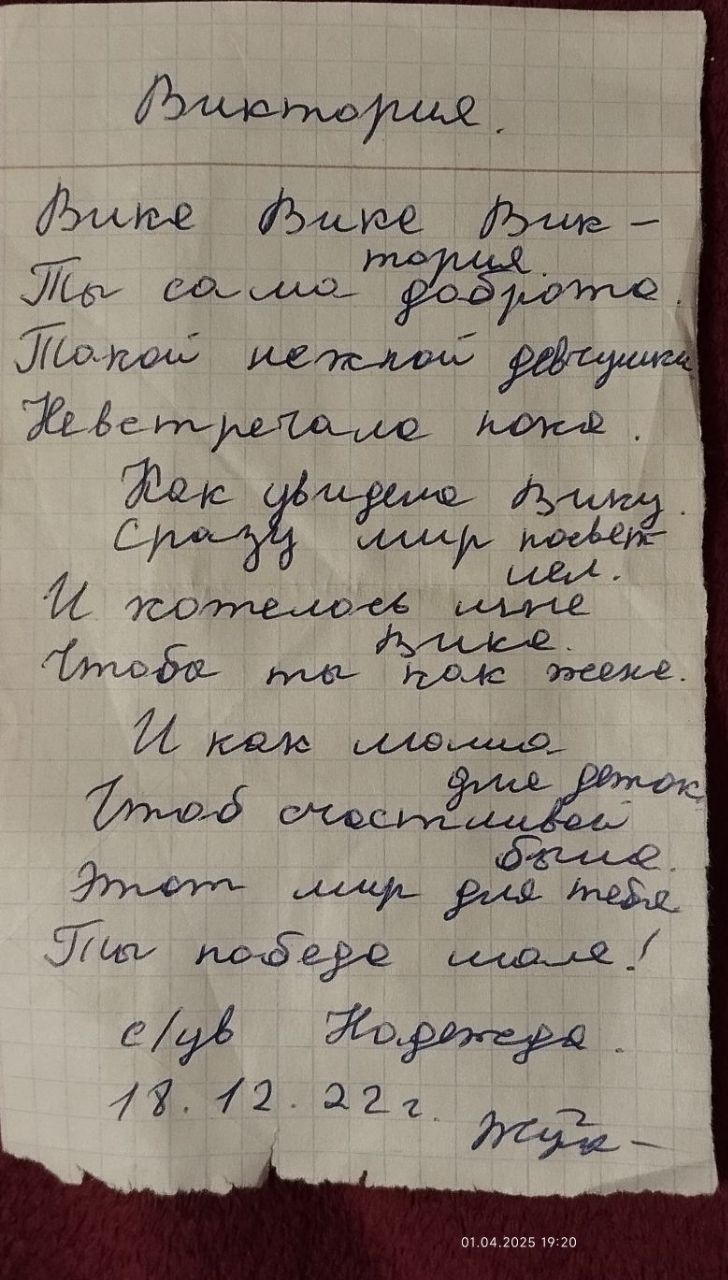 Виктория.
Вика Вика Вик-
тория.
Ты сама доброта.
Такой нежной девчушки
Невстречала пока.
Как увидела Вику.
Сразу мир посвет-
лел.
И хотелось мне
Вика.
Чтоба ты как жена.
И как мама
для деток
Чтоб счастливой
была.
Этот мир для тебя
Ты победа моя!
с/ув Надежда.
18.12.22г.
Жук-
01.04.2025 19:20